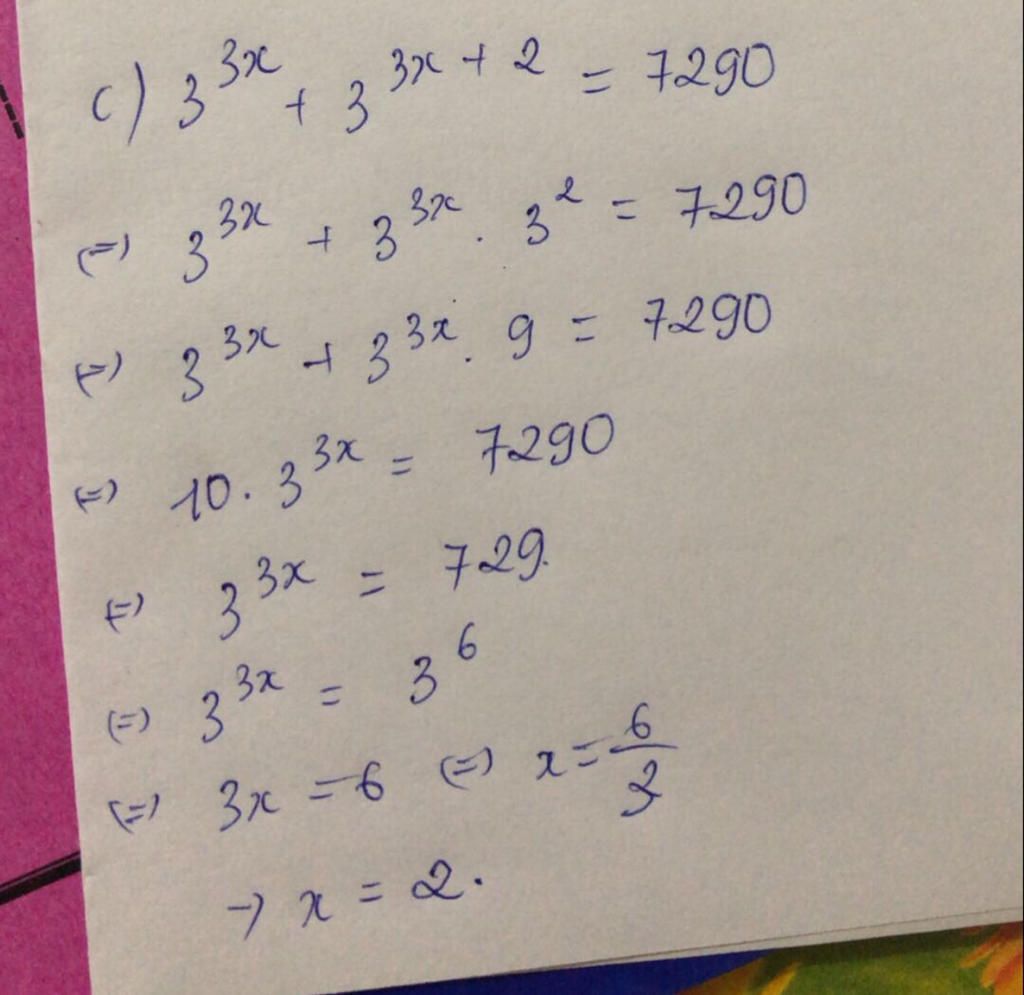 c) 3^{3x} + 3^{3x+2} = 7290
(=) 3^{3x} + 3^{3x} . 3^2 = 7290
(=) 3^{3x} + 3^{3x} . 9 = 7290
(=) 10 . 3^{3x} = 7290
(=) 3^{3x} = 729.
(=) 3^{3x} = 3^6
(=) 3x = 6 (=) x = \frac{6}{3}
→ x = 2.